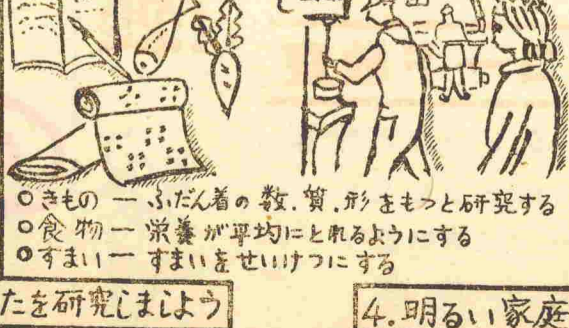 ○きもの ― ふだん着の数.質.形をもつと研究する
○食物 ― 栄養が平均にとれるようにする
○すまい ― すまいをせいけつにする
たを研究しましよう
4.明るい家庭